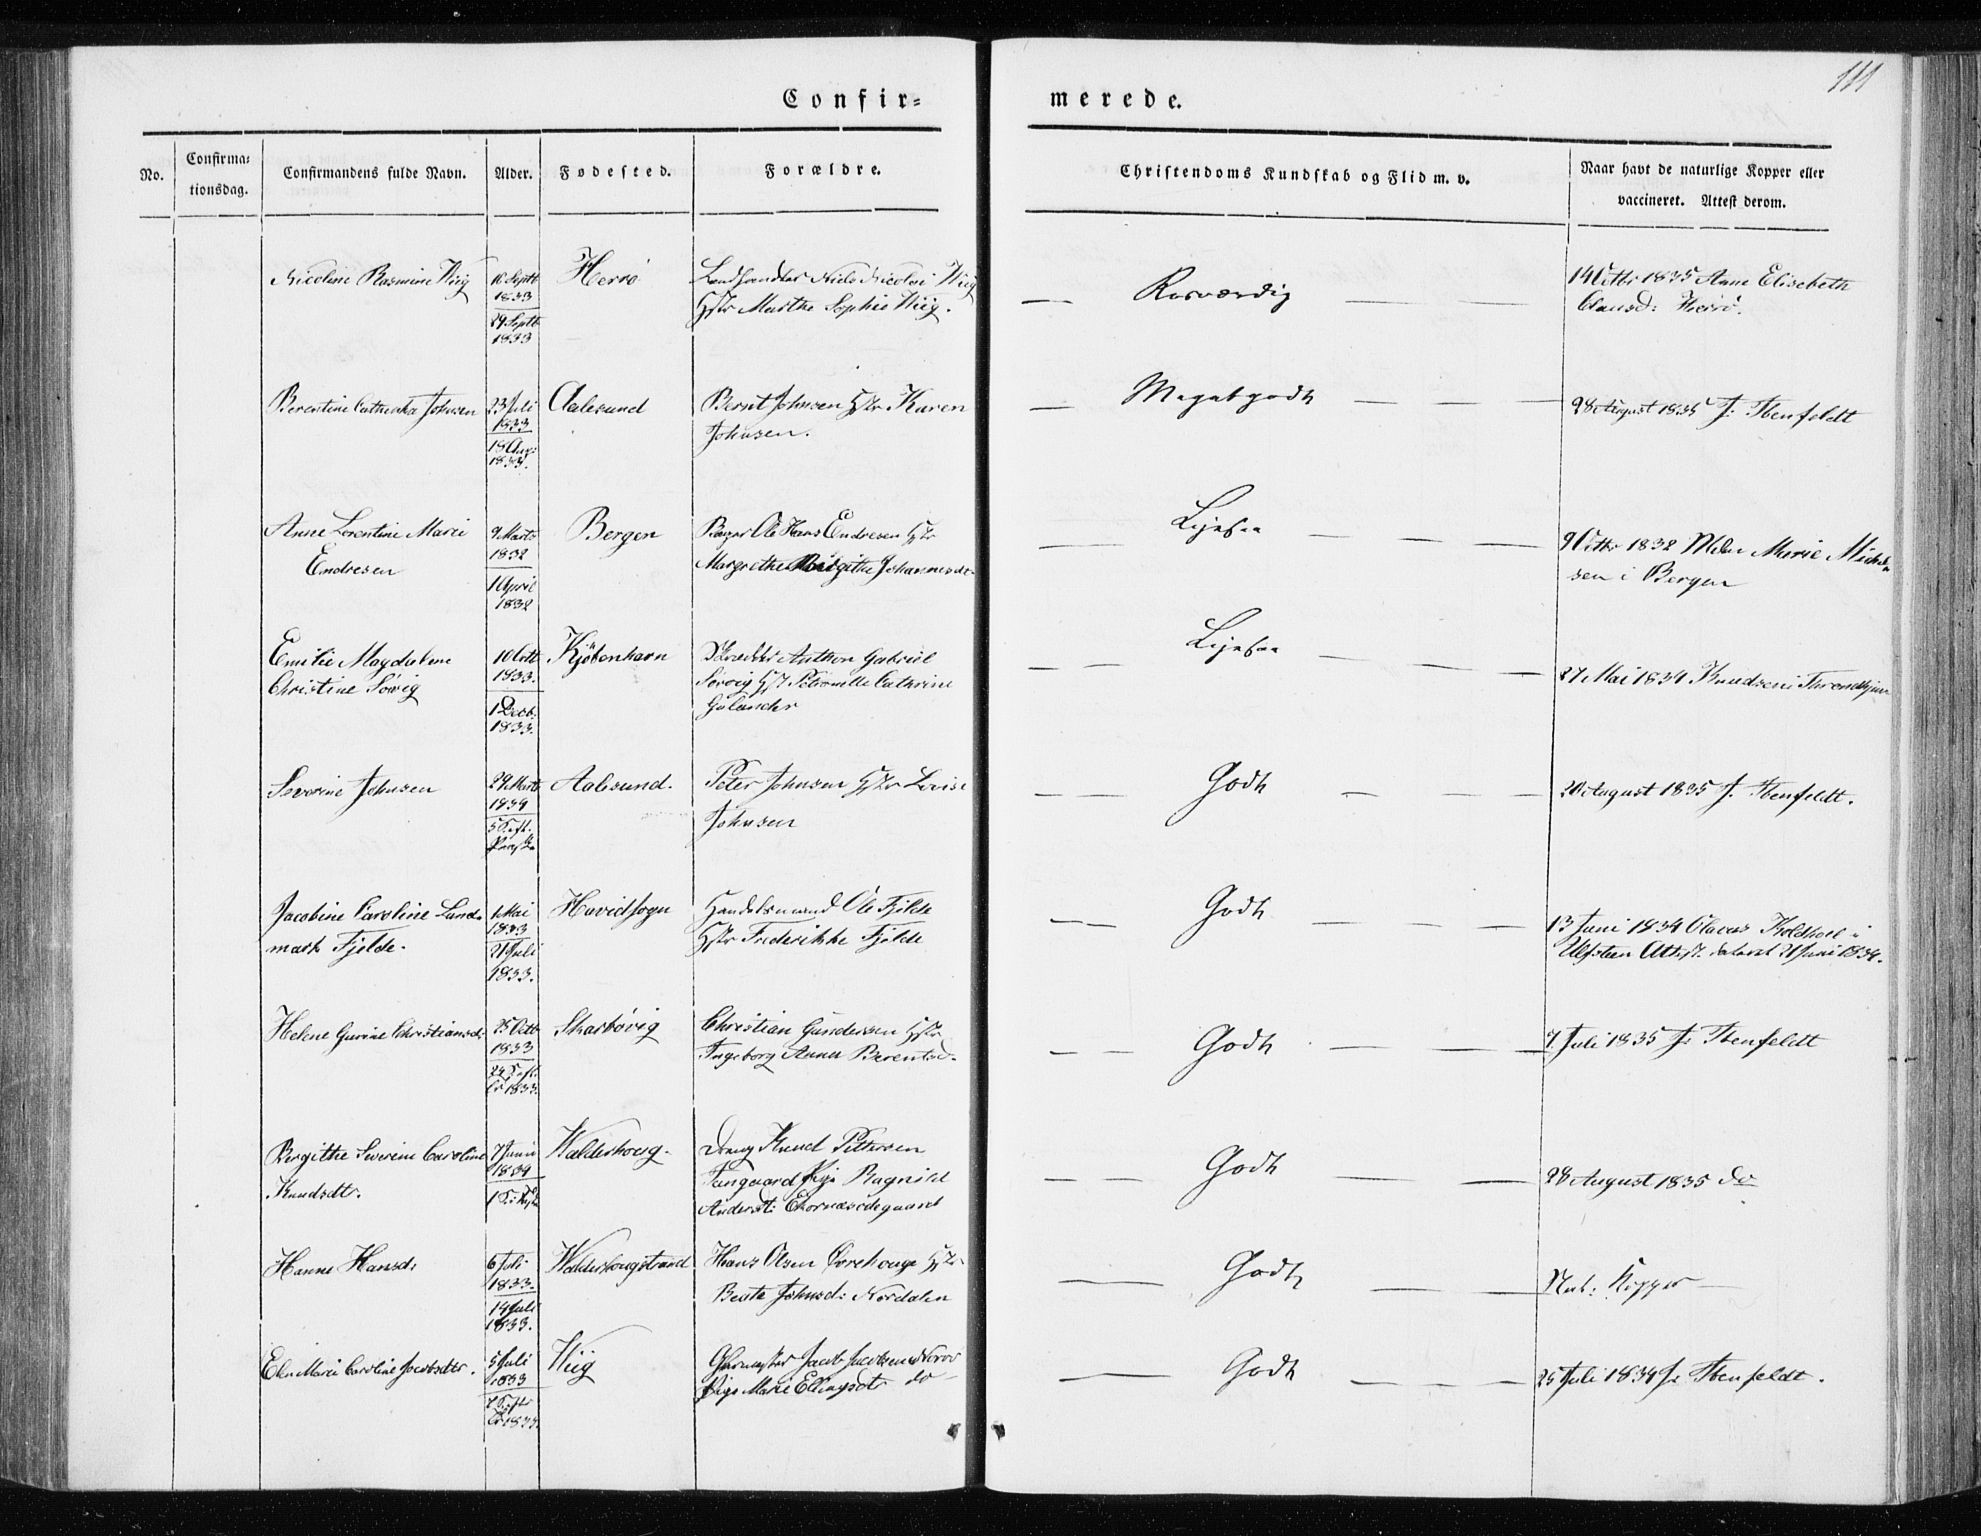 111
Confir=
merede.
No.
Confirma=
tionsdag.
Confirmandens fulde Navn.
Alder.
Fødested.
Forældre.
Christendoms Kundskab og Flid m. v.
Naar havt de naturlige Kopper eller
vaccineret. Attest derom.
Nicoline Rasmine Wiig
16 Septb
1833
29 Septb
1833
Herrö
Landhandler Niels Nicolai Wiig
Hstr Marthe Sophie Wiig.
Rosværdig
14 Octbr 1835 Anne Elisabeth
Clausd: Herrö.
Berentine Cathinka Johnsen
23 Juli
1833
18 Aug:
1833.
Aalesund
Bernt Johnsen Hstr Karen
Johnsen.
Megetgodt
28 August 1835 J. Ibenfeldt
Anne Lorentine Marie
Endresen
9 Marts
1832
1 April
1832
Bergen
Ole Hans Endresen Hstr
Margrethe Johannesdr
9 Octbr 1832 Marie Michel
sen i Bergen
Emilie Magdalene
Christine Sörvig
10 Octb
1833.
1 Decb.
1833.
Kjöbenhavn
Skrædder Anthon Gabriel
Sörvig Hst Petronelle Cathrine
Gulander
27 Mai 1834 Knudsen i Throndhjem
Severine Johnsen
29 Marts
1834
Aalesund.
Peter Johnsen Hstr Lovise
Johnsen
Godt
20 August 1835 J. Ibenfeldt.
Jacobine Caroline Land=
mark Fjelde.
1 Mai
1833
21 Juli
1833.
Havidsogn
Handelsmand Ole Fjelde
Hstr Frederikke Fjelde
Godt
13 Juni 1834 Olavus Koldhoel i
Ulfsteen Attest dateret 21 Juni 1834.
Helene Gurine Christiansd:
25 Octb
1833
Skarbövig
Christian Gundersen Hstr
Ingeborg Anna Berentsd.
Godt
7 Juli 1835 J: Ibenfeldt
Bergithe Severine Caroline
Knudsdtr.
7 Juni
1834
Walderhoug.
Dreng Knud Pettersen
Tangaard Pige Ragnild
Andersd:
Godt
28 August 1835 do
Hanne Hansd:
6 Juli
1833.
14 Juli
1833.
Walderhougstrand
Hans Olsen Hstr
Beate Johnsd: Nordalen
Godt
Nat: Kopper
Elen Marie Caroline Jacobsdtr.
5 Juli
1833
Wiig
Jacob Jacobsen
Pige Marie Ellingsdtr do
Godt
25 Juli 1834 J: Ibenfeldt.